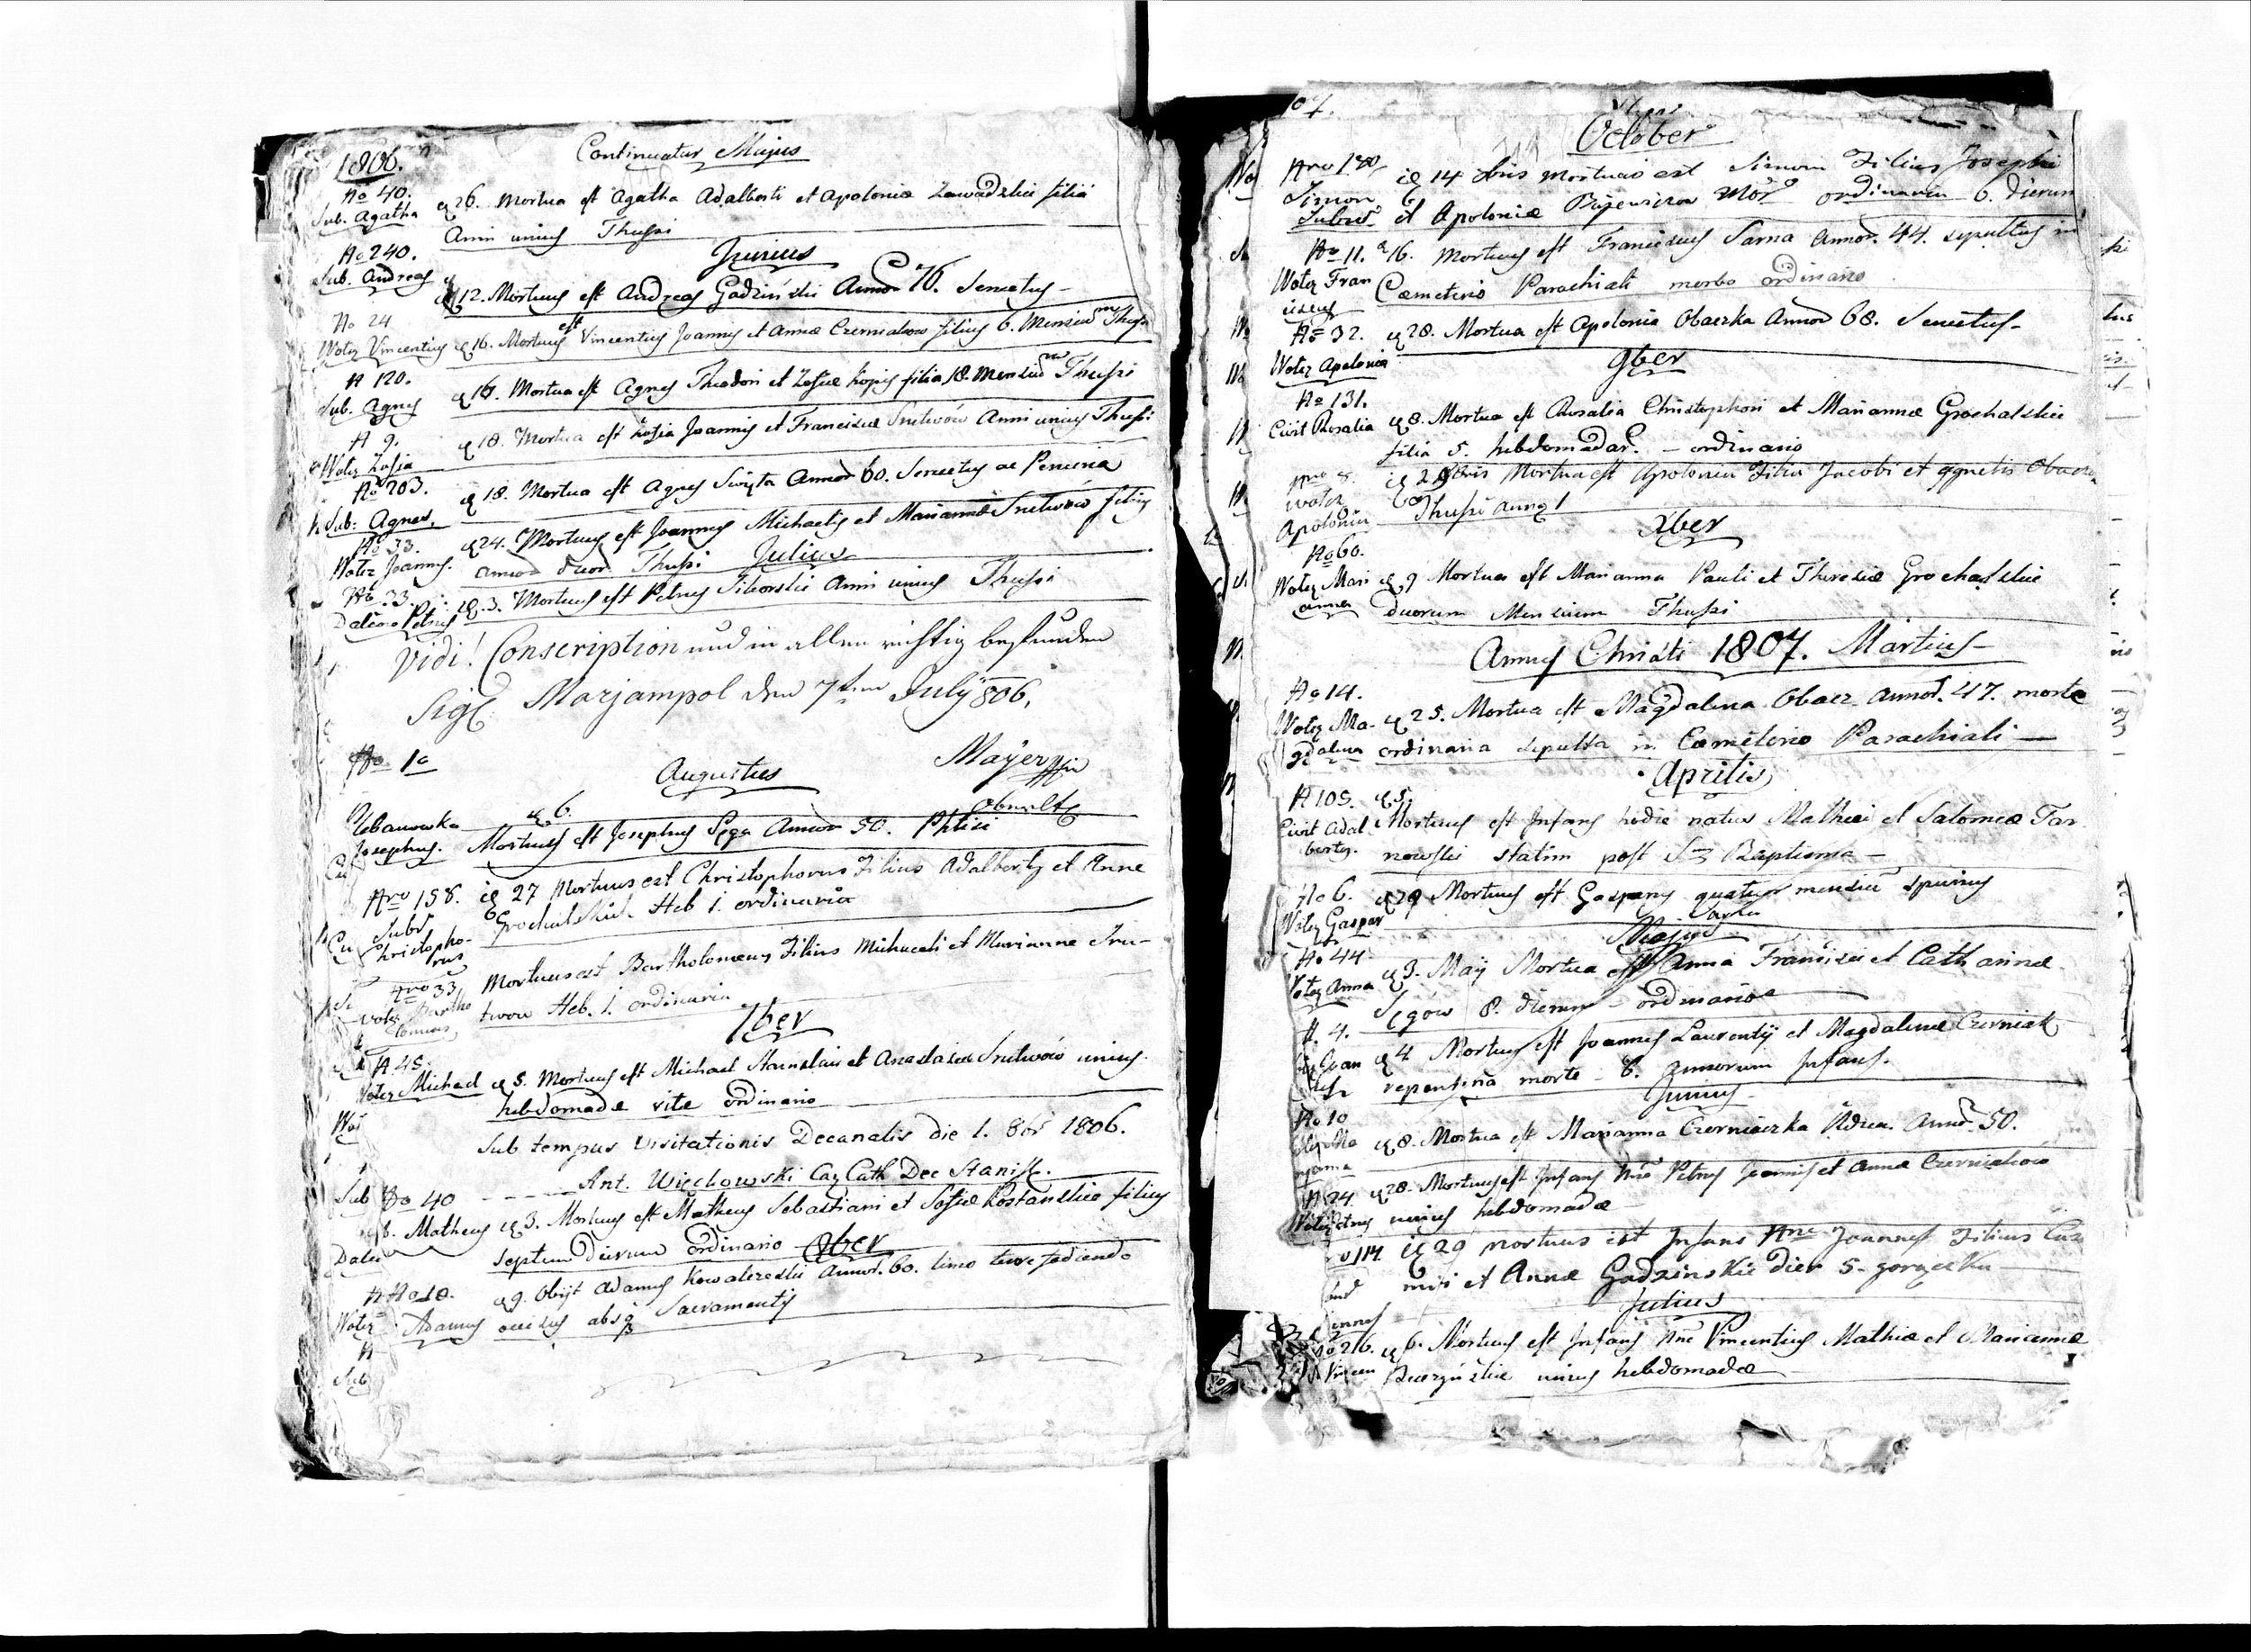 1806.
Continuatur Majus
No 40.
Sub. Agatha
26. Mortua est Agatha Adalberti et Apoloniæ Zawadzkie filia
Anni unius Thussi
No 240.
Junius
Sub. Andreas
12. Mortuus est Andreas Godziński Annor 76. Senectus
No 24
Wolez Vincentius
16. Mortuus est Vincentius Joannis et Annæ Czerniakow filius 6. Mensium Thussi
N 120.
Sub. Agnes
16. Mortua est Agnes Theodori et Zofiæ Kopij filia 18. Mensium Thussi
N 9.
Wolez Zofia
18. Mortua est Zofia Joannis et Franciscæ Srutwów Anni unius Thussi
No 203.
Sub: Agnes.
18. Mortua est Agnes Swięta Annor 60. Senectus ac Penuria
No 33.
Wolez Joannes.
24. Mortuus est Joannes Michaelis et Mariannæ Srutwów filius
annor duor. Thussi
Julius
No 33.
Petrus
3. Mortuus est Petrus Sikorski Anni unius Thussi
Vidi! Conscription und in allen richtig befunden
Sigl. Marjampol den 7ten July 806.
No 1o
Augustus
Mayer
Plebanowka
6.
Josephus.
Mortuus est Josephus Sęga Annor 50. Phtisi
Nro 158.
27 Mortuus est Christophorus Filius Adalberty et Anne
Subr
Christopho-
rus
Grochalskich Heb 1. ordinaria
Nro 33
Mortuus est Bartholomeus Filius Michaeli et Marianne Sru-
Wolez Bartho
lomeus
twow Heb. 1. ordinaria
7ber
N 45.
Wolez Michael
5. Mortuus est Michael Stanislai et Anastasiæ Srutwów unius
hebdomadæ vitæ ordinario
Sub tempus Visitationis Decanalis die 1. 8br 1806.
Ant. Więckowski Can Cath Dec Stanisl.
No 40
Sub. Matheus
3. Mortuus est Matheus Sebastiani et Sofiæ Kostanskie filius
septem dierum ordinario
9ber
No 10.
9. Obijt Adamus Kowalczedki Annor. 60. limo terre fodiendo
Wolez Adamus
occisus absq Sacramentis
October
Nro 180
14 8bris mortuus est Simon Filius Josephi
Simon
et Apoloniæ Mor ordinaria 6. Dierum
No 11.
16. Mortuus est Franciscus Sarna Annor. 44. sepultus in
Wolez Fran
ciscus
Cæmeterio Parachiali morbo ordinario
No 32.
28. Mortua est Apolonia Obaczka Annor 68. Senectus
Wolez Apolonia
9ber
No 131.
Civit Rosalia
8. Mortua est Rosalia Christophori et Mariannæ Grochalskie
filia 5. hebdomadar. ordinario
Nro 8.
Wolez
Apolonia
29 9bris Mortua est Apolonia Filia Jacobi et Agnetis
Thussi anno 1
Xber
No 60.
Wolez Mari
anna
9 Mortua est Marianna Pauli et Theresiæ Grochalskie
duorum Mensium Thussi
Annus Christi 1807. Martius
No 14.
Wolez Ma-
gdalena
25. Mortua est Magdalena Obacz Annor. 47. morte
ordinaria sepulta in Cæmeterio Parachiali
Aprilis
N 105.
5.
Civit Adal
bertus.
Mortuus est Infans hodie natus Mathiæi et Salomeæ Tar
nowskie statim post S Baptisma
No 6.
Wolez Gaspar
29 Mortuus est Gasparus quatuor mensiu spurius
Majus
No 44
Wolez Anna
3. Maÿ Mortua est Anna Francisci et Catharinæ
Sęgów 8. dierum ordinario
N. 4.
4 Mortuus est Joannes Laurentij et Magdalenæ Czerniak
repentina morte 8. annorum Infans.
Junius
No 10
8. Mortua est Marianna Czerniaczka Annor. 50.
N 24
28. Mortuus est Infans Nne Petrus Joannis et Annæ Czerniakow
unius hebdomadæ
29 mortuus est Infans Nne Joannes Filius Cas
miri et Annæ Godzinskie dier 5.
Julius
No 26.
6. Mortuus est Infans Nne Vincentius Mathiæ et Mariannæ
unius hebdomadæ